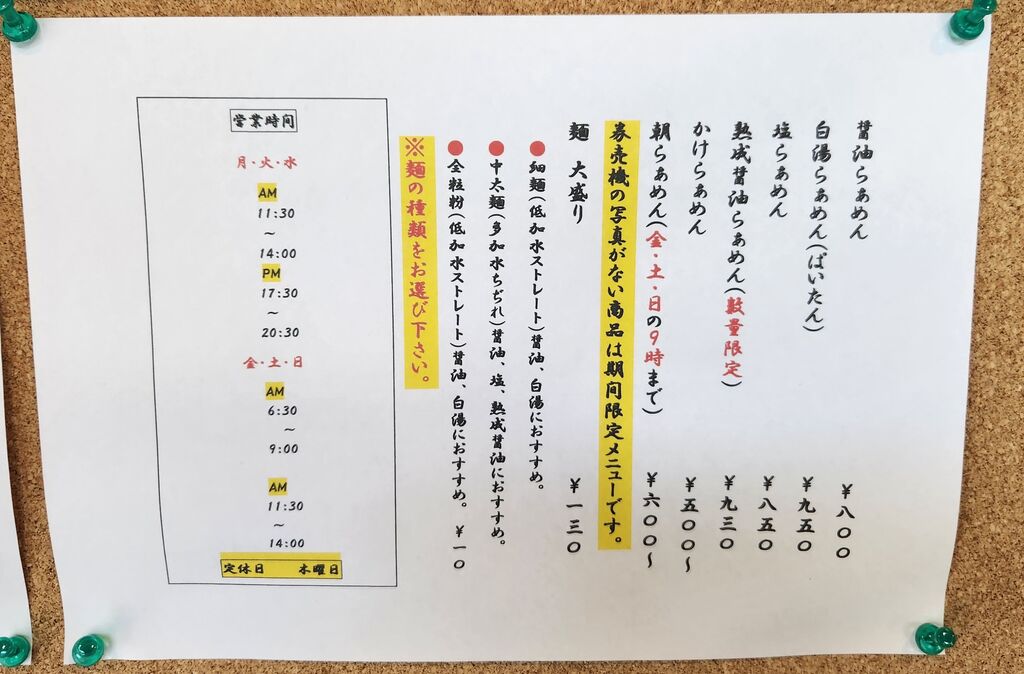 醤油らぁめん ￥八〇〇
白湯らぁめん(ばいたん) ￥九五〇
塩らぁめん ￥八五〇
熟成醤油らぁめん(数量限定) ￥九三〇
かけらぁめん ￥五〇〇～
朝らぁめん(金・土・日の9時まで) ￥六〇〇～
券売機の写真がない商品は期間限定メニューです。
麺 大盛り ￥一三〇
●細麺(低加水ストレート)醤油、白湯におすすめ。
●中太麺(多加水ちぢれ)醤油、塩、熟成醤油におすすめ。
●全粒粉(低加水ストレート)醤油、白湯におすすめ。 ￥一〇
※麺の種類をお選び下さい。
営業時間
月・火・水
AM
11:30
～
14:00
PM
17:30
～
20:30
金・土・日
AM
6:30
～
9:00
AM
11:30
～
14:00
定休日 木曜日